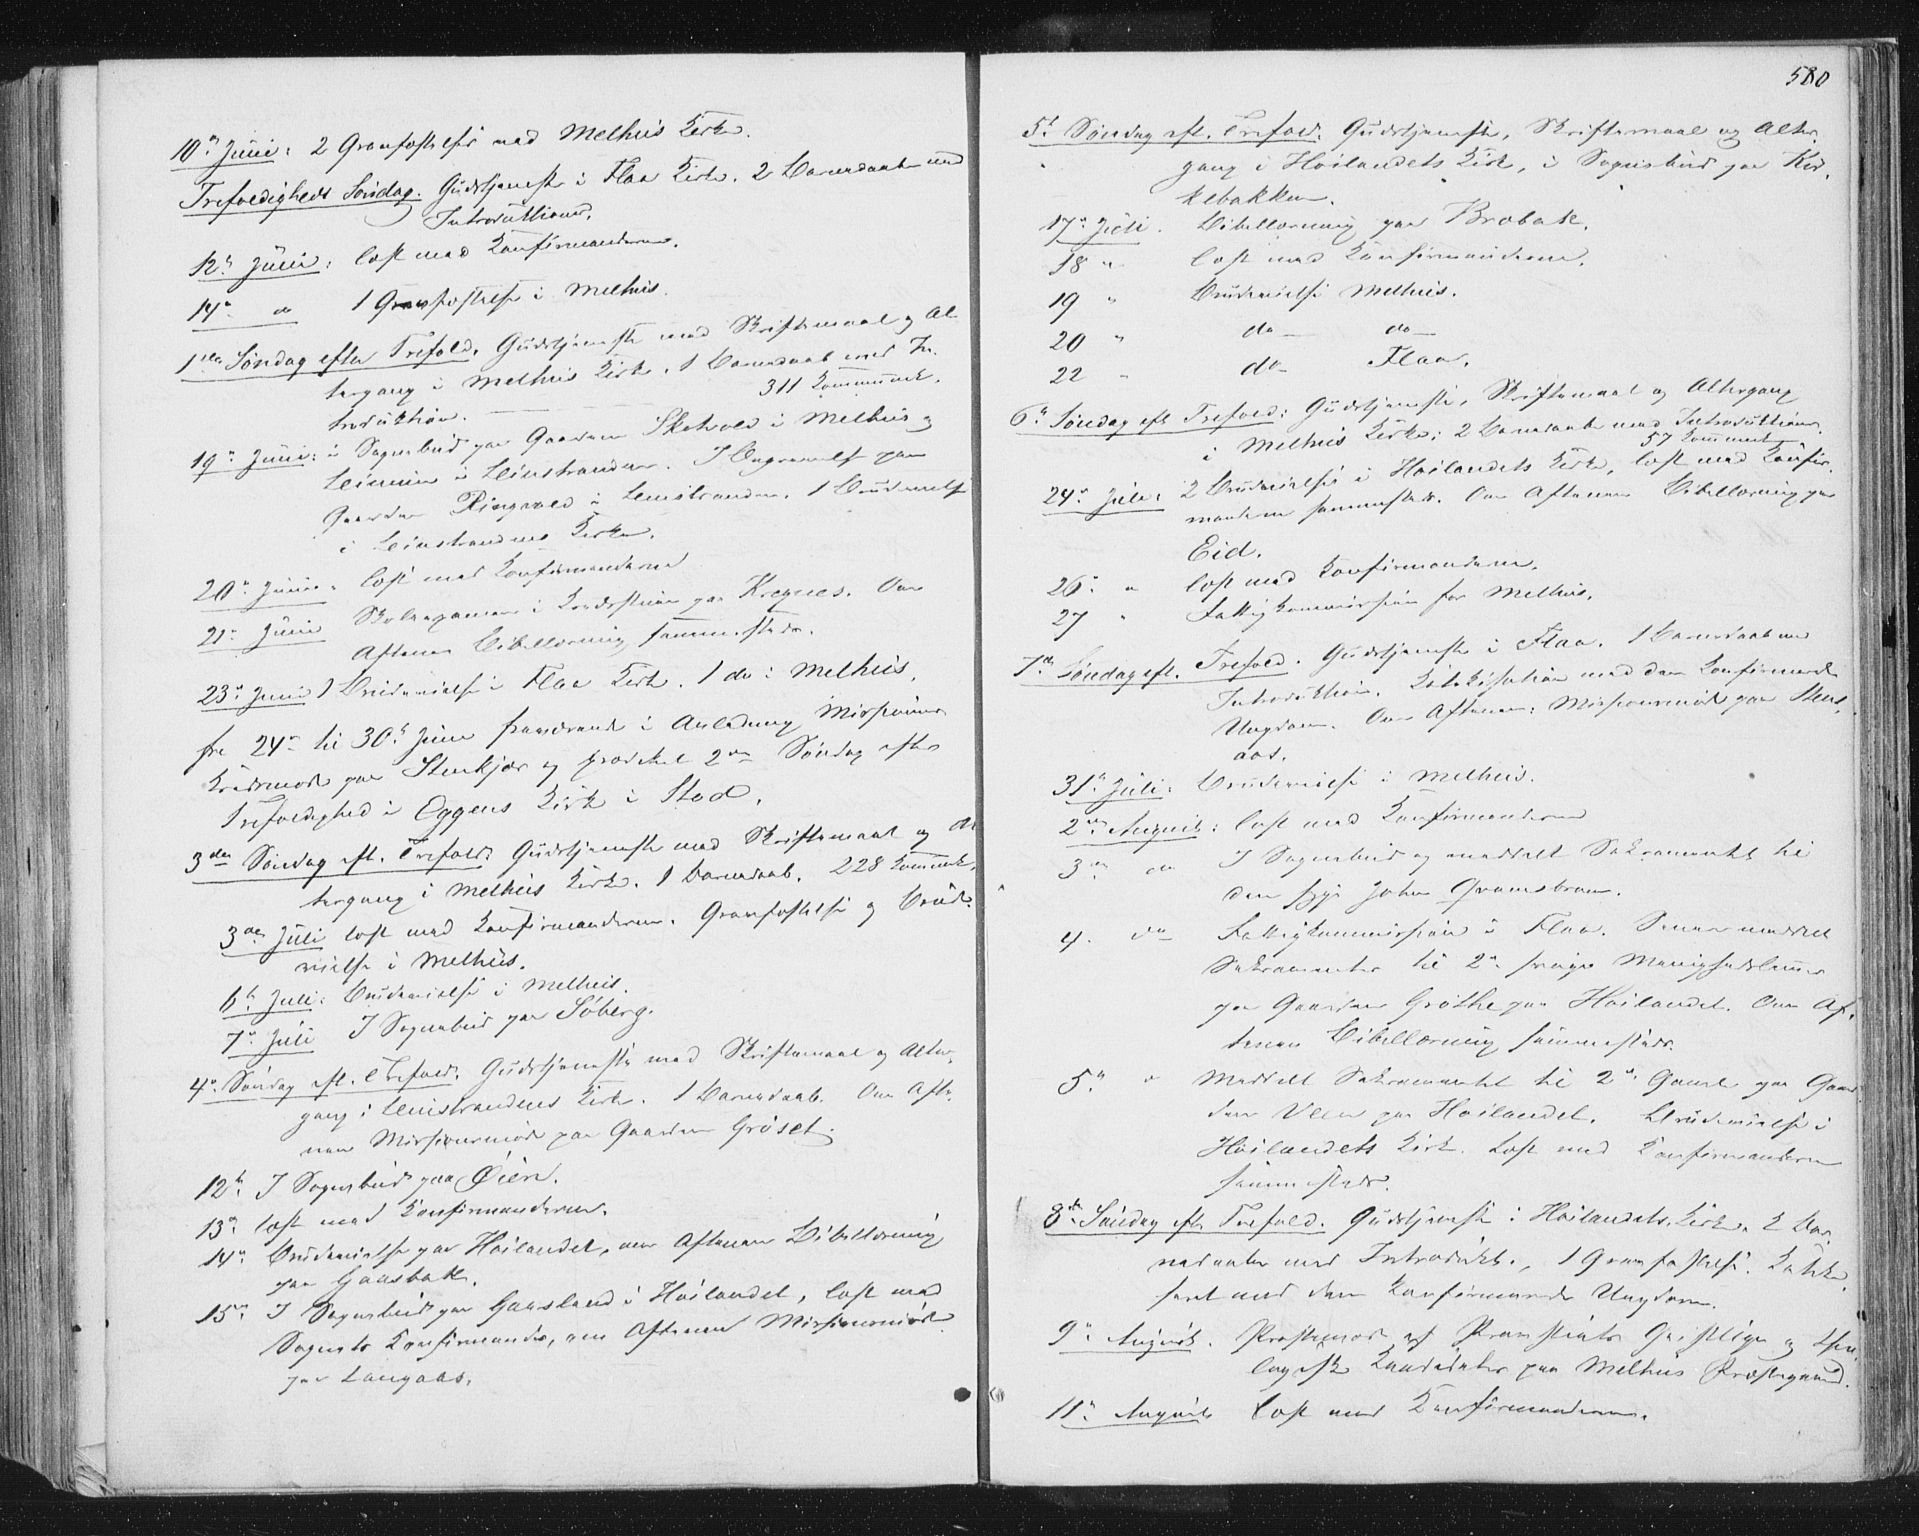 10de Juni: 2 Gravfæstelser ved Melhus Kirke.
Trefoldigheds Søndag. Gudstjeneste i Flaa Kirke. 2 Barnedaab med
Introduktioner.
12te Juni: læst med Konfirmanderne.
14de do 1 Gravfæstelse i Melhus.
1ste Søndag efter Trefold. Gudstjeneste med Skriftemaal og Al-
tergang i Melhus Kirke. 1 Barnedaab med In-
troduktion. 311 Kommunik.
19de Juni: i Sognebud paa Gaarden Skjetvold i Melhus og
i Leinstranden. I
Gaarden Ringvold i Leinstranden. 1 Brudevielse
i Leinstrandens Kirke.
20de Juni: læst med Konfirmanderne
21de Juni Skoleexamen i Kredsstuen paa Kregnes. Om
Aftenen Bibellæsning sammesteds.
23de Juni 1 Brudevielse i Flaa Kirke. 1 do i Melhus.
fra 24de til 30te Juni fraværende i Anledning Missions
Kredsmøde paa Stenkjær og prædiket 2den Søndag efter
Trefoldighed i Eggens Kirke i Stod.
3die Søndag eft. Trefold: Gudstjeneste med Skriftemaal og Al
tergang i Melhus Kirke. 1 Barnedaab. 228 Kommunik.
3die Juli læst med Konfirmanderne. Gravfæstelse og Brude-
vielse i Melhus.
6te Juli: Brudevielse i Melhus.
7de Juli I Sognebud paa Søberg.
4de Søndag eft. Trefold: Gudstjeneste med Skriftemaal og Alter-
gang i Leinstrandens Kirke. 1 Barnedaab. Om Afte-
nen Missionsmøde paa Gaarden Grøset.
12te I Sognebud paa Øien.
13de læst med Konfirmanderne.
14de Brudevielse paa Høilandet, om Aftenen Bibellæsning
paa Gaasbak.
15de I Sognebud paa Gaasland i Høilandet, læst med
Sognets Konfirmander, om Aftenen Missionsmøde
paa Langaas.
580
5te Søndag eft. Trefold: Gudstjeneste, Skriftemaal og Alter-
gang i Høilandets Kirke, i Sognebud paa Kir-
kebakken.
17de Juli. Bibellæsning paa Brobak.
18 " læst med Konfirmanderne.
19 " Brudevielse Melhus.
20 " do do
22 " do Flaa.
6te Søndag eft Trefold: Gudstjeneste, Skriftemaal og Altergang
i Melhus Kirke; 2 Barnedaab med Introduktion.
57 Kommunik
24de Juli: 2 Brudevielser i Høilandets Kirke, læst med Konfir-
manderne sammesteds. Om Aftenen Bibellæsning paa
Eid.
26de " læst med Konfirmanderne.
27 " Fattigkommission for Melhus.
7de Søndag eft. Trefold. Gudstjeneste i Flaa. 1 Barnedaab med
Introduktion. Katekisation med den konfirmerede
Ungdom. Om Aftenen: Missionsmøde paa
aas.
31te Juli: Brudevielse i Melhus.
2den August: læst med Konfirmanderne
3die do I Sognebud og meddelt Sakramentet til
den syge John Qvamsbroen.
4. do Fattigkommission i Flaa. Senere meddelt
Sakramentet til 2de svage Menighedslemmer
paa Gaarden Grøthe paa Høilandet. Om Af-
tenen Bibellæsning sammesteds.
5te " Meddelt Sakramentet til 2de Gamle paa Gaar-
den Ulen paa Høilandet. Brudevielse i
Høilandets Kirke. Læst med Konfirmanderne
sammesteds.
8de Søndag eft Trefold. Gudstjeneste i Høilandets Kirke. 2 Bar-
nedaaber med Introdukt., 1 Gravfæstelse. Kateki-
seret med den konfirmerede Ungdom.
9de August. Præstemøde af Provstiets Geistlige og theo-
logiske Kandidater paa Melhus Præstegaard.
11te August læst med Konfirmanderne.